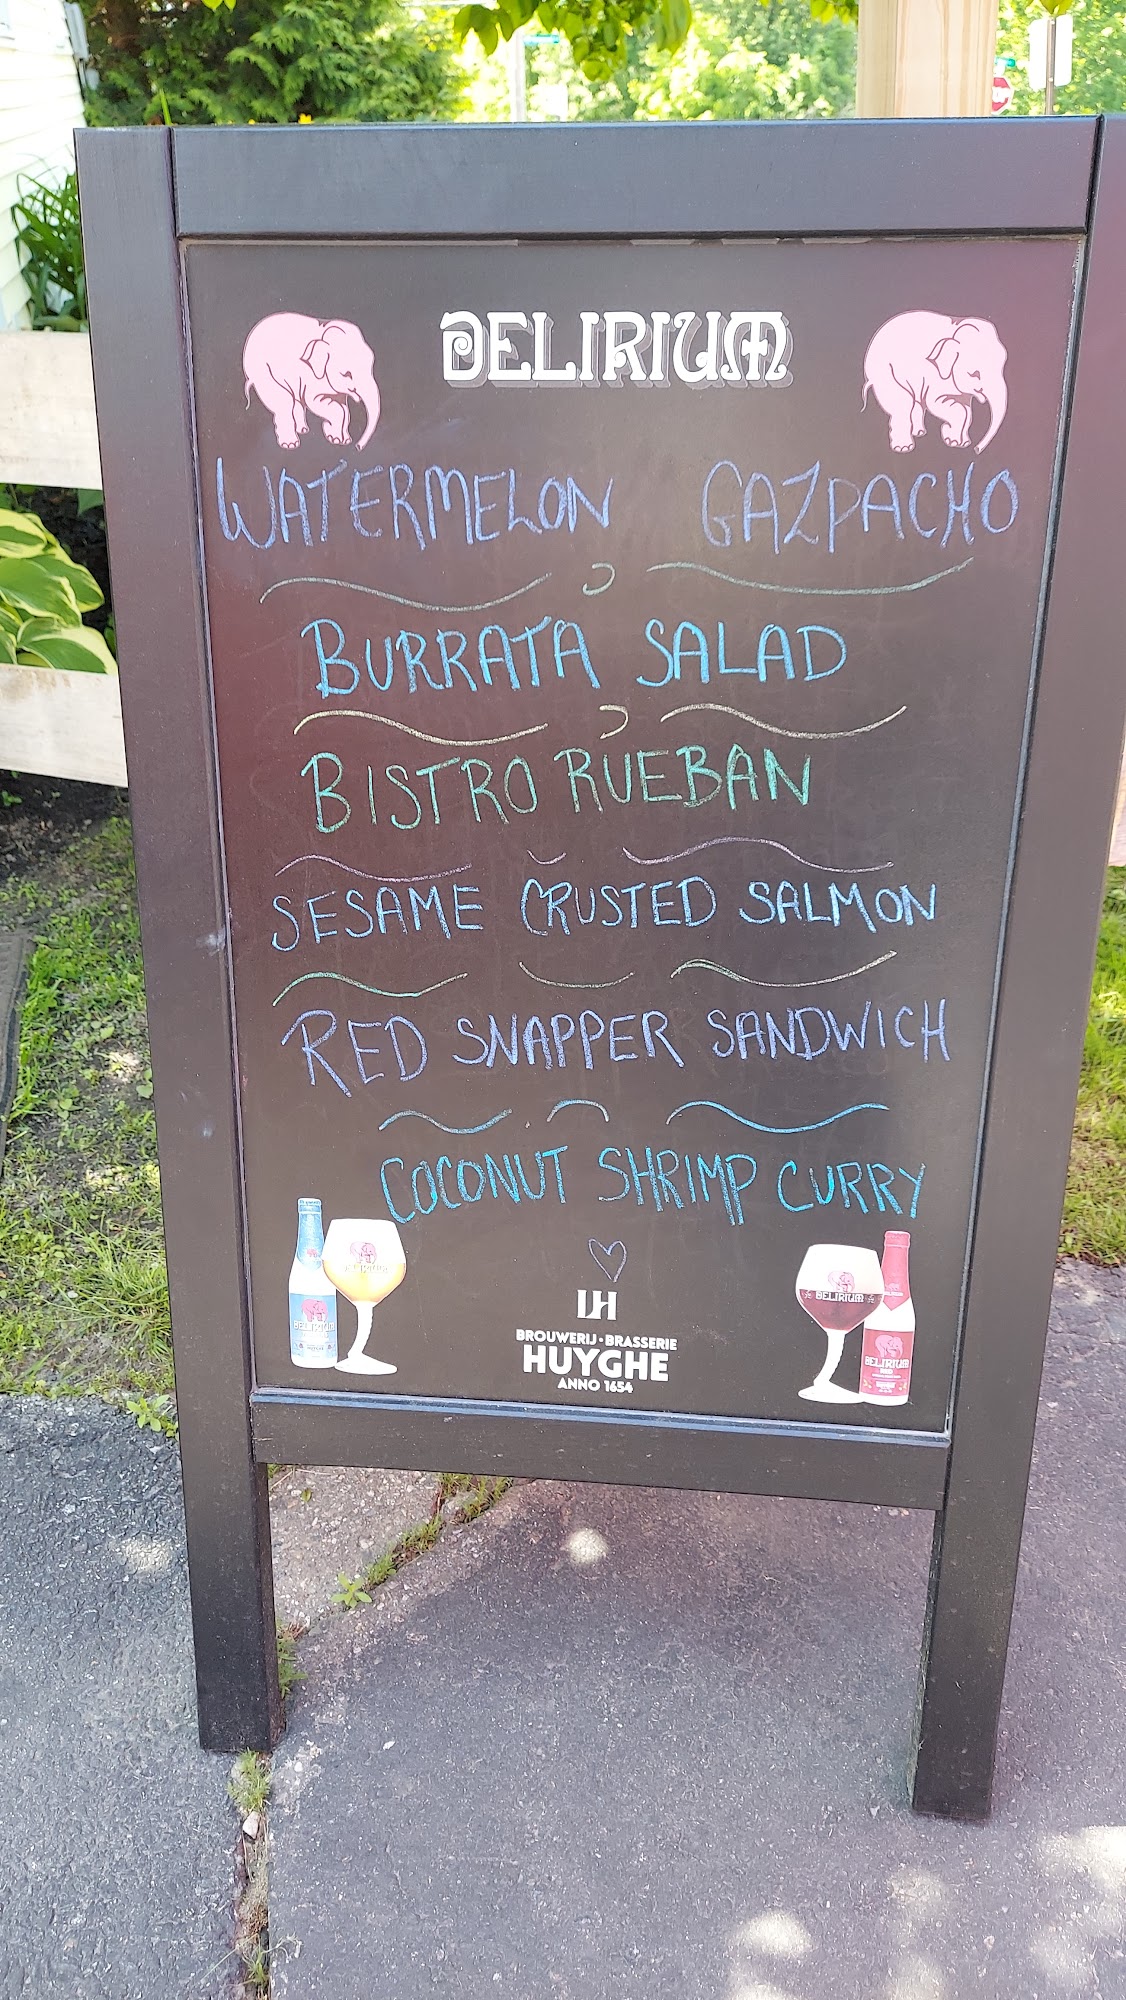 DELIRIUM
WATERMELON GAZPACHO
BURRATA SALAD
BISTRO RUEBAN
SESAME CRUSTED SALMON
RED SNAPPER SANDWICH
COCONUT SHRIMP CURRY
LH
BROUWERIJ · BRASSERIE
HUYGHE
ANNO 1654
DELIRIUM
DELIRIUM
DELIRIUM
DELIRIUM